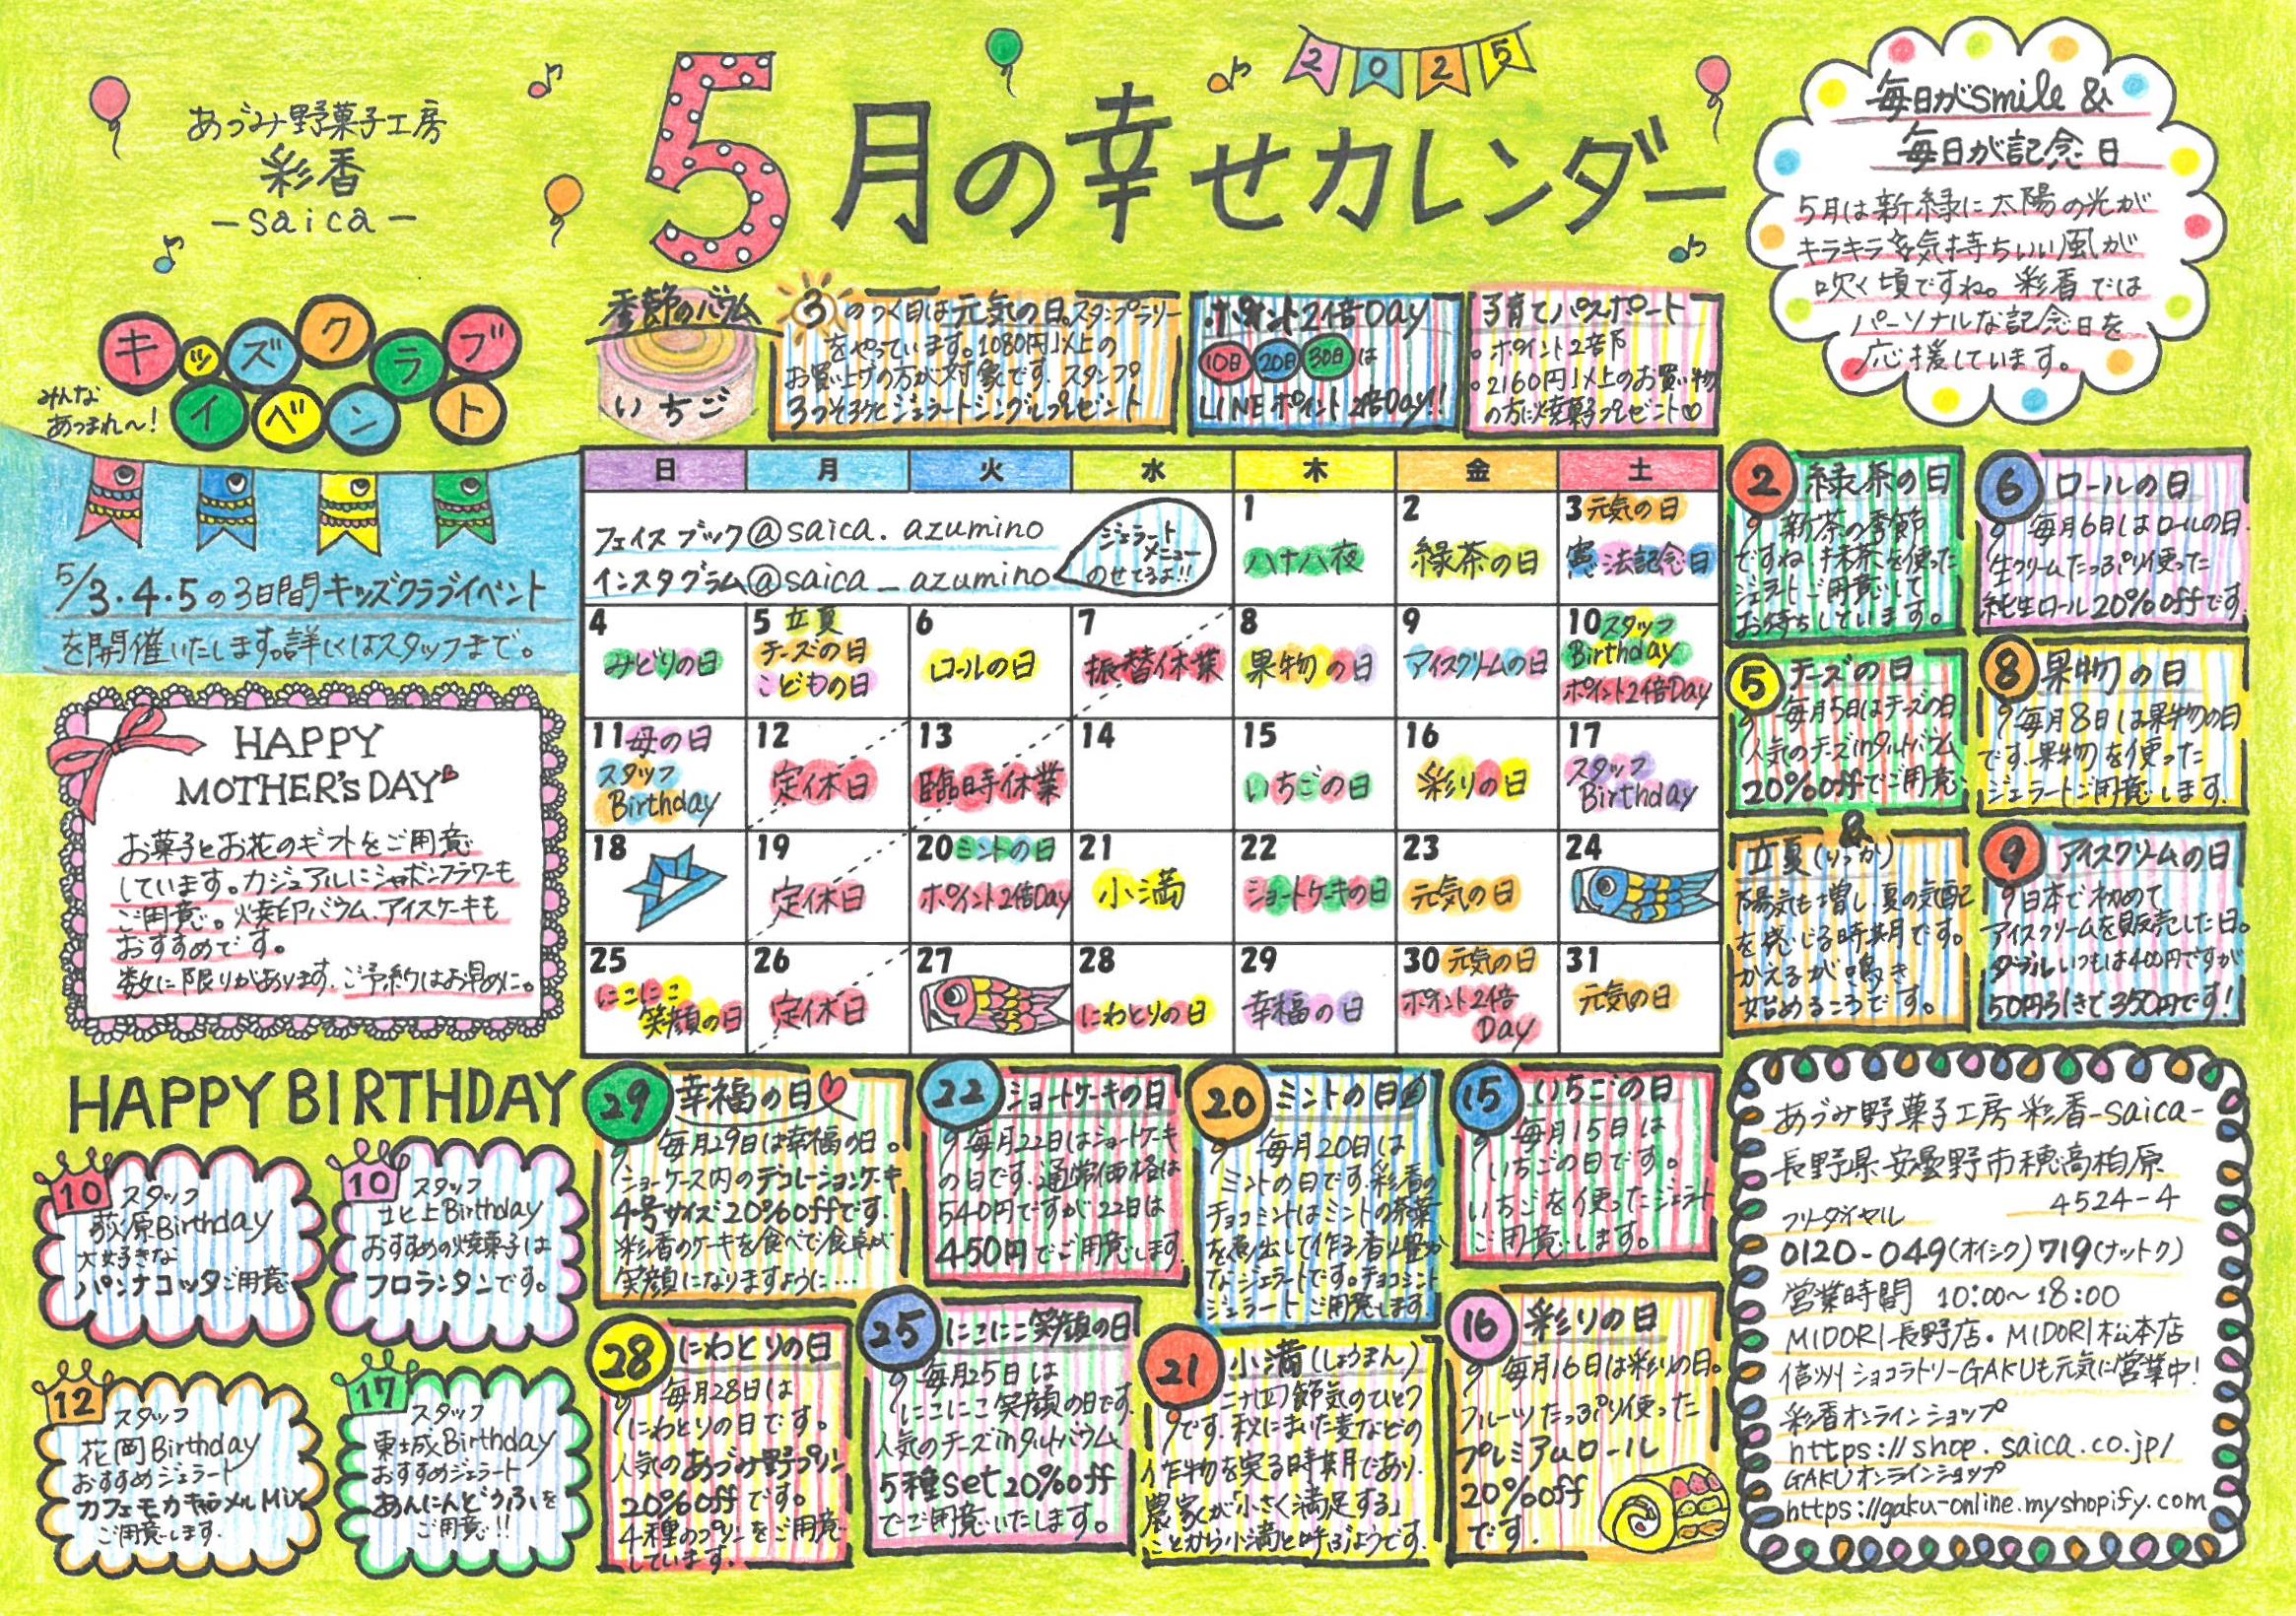 あづみ野菓子工房
彩香
-saica-
2025
5月の幸せカレンダー
毎日がsmile &
毎日が記念日
5月は新緑に太陽の光が
キラキラ 気持ちいい風が
吹く頃ですね。彩香では
パーソナルな記念日を
応援しています。
キッズクラブ
イベント
みんな
あつまれ〜!
5/3.4.5の3日間キッズクラブイベント
を開催いたします。詳しくはスタッフまで。
季節のバウム
いちご
3のつく日は元気の日。スタンプラリー
をやっています。1080円以上の
お買い上げの方が対象です。スタンプ
3つそろうとジェラートシングルプレゼント
ポイント2倍Day
10日 20日 30日は
LINEポイント2倍Day!!
子育てパスポート
。ポイント2倍
。2160円以上のお買い物
の方に焼菓子プレゼント♡
日 月 火 水 木 金 土
フェイスブック@saica.azumino
インスタグラム@saica_azumino
ジェラート
メニュー
のせてるよ!!
1
八十八夜
2
緑茶の日
3 元気の日
憲法記念日
4
みどりの日
5 立夏
チーズの日
こどもの日
6
ロールの日
7
振替休業
8
果物の日
9
アイスクリームの日
10 スタッフ
Birthday
ポイント2倍Day
11 母の日
スタッフ
Birthday
12
定休日
13
臨時休業
14
15
いちごの日
16
彩りの日
17
スタッフ
Birthday
18
19
定休日
20 ミントの日
ポイント2倍Day
21
小満
22
ショートケーキの日
23
元気の日
24
25
にこにこ
笑顔の日
26
定休日
27
28
にわとりの日
29
幸福の日
30 元気の日
ポイント2倍
Day
31
元気の日
2 緑茶の日
新茶の季節
ですね。抹茶を使った
ジェラートご用意して
お待ちしています。
6 ロールの日
毎月6日はロールの日。
生クリームたっぷり使った
純生ロール20%offです。
5 チーズの日
毎月5日はチーズの日
人気のチーズinタルトバウム
20%offでご用意
8 果物の日
毎月8日は果物の日
です。果物を使った
ジェラートご用意します。
&
立夏(りっか)
陽気も増し、夏の気配
を感じる時期です。
かえるが鳴き
始めるころです。
9 アイスクリームの日
日本で初めて
アイスクリームを販売した日。
ダブルいつもは400円ですが
50円引きで350円です!
HAPPY
MOTHER'S DAY
お菓子とお花のギフトをご用意
しています。カジュアルにシャボンフラワーも
ご用意。焼印バウム、アイスケーキも
おすすめです。
数に限りがあります。ご予約はお早めに。
HAPPY BIRTHDAY
10 スタッフ
荻原Birthday
大好きな
パンナコッタご用意
10 スタッフ
北上Birthday
おすすめの焼菓子は
フロランタンです。
12 スタッフ
花岡Birthday
おすすめジェラート
カフェモカキャラメルMix
ご用意します。
17 スタッフ
東城Birthday
おすすめジェラート
あんにんどうふを
ご用意!!
29 幸福の日
毎月29日は幸福の日。
ショーケース内のデコレーションケーキ
4号サイズ20%offです。
彩香のケーキを食べて食卓が
笑顔になりますように…
22 ショートケーキの日
毎月22日はショートケーキ
の日です。通常価格は
540円ですが22日は
450円でご用意します。
20 ミントの日
毎月20日は
ミントの日です。彩香の
チョコミントはミントの茶葉
を煮出して作る香り豊か
なジェラートです。チョコミント
ジェラートご用意します
15 いちごの日
毎月15日は
いちごの日です。
いちごを使ったジェラート
ご用意します。
28 にわとりの日
毎月28日は
にわとりの日です。
人気のあづみ野プリン
20%offです。
4種のプリンをご用意
しています。
25 にこにこ笑顔の日
毎月25日は
にこにこ笑顔の日です。
人気のチーズinタルトバウム
5種set20%off
でご用意いたします。
21 小満(しょうまん)
二十四節気のひとつ
です。秋にまいた麦などの
作物を実る時期であり、
農家が「小さく満足する」
ことから小満と呼ぶようです。
16 彩りの日
毎月16日は彩りの日。
フルーツたっぷり使った
プレミアムロール
20%off
です。
あづみ野菓子工房 彩香-saica-
長野県安曇野市穂高柏原
4524-4
フリーダイヤル
0120-049(オイシク)719(ナットク)
営業時間 10:00〜18:00
MIDORI長野店。MIDORI松本店
信州ショコラトリーGAKUも元気に営業中!
彩香オンラインショップ
https://shop.saica.co.jp/
GAKUオンラインショップ
https://gaku-online.myshopify.com